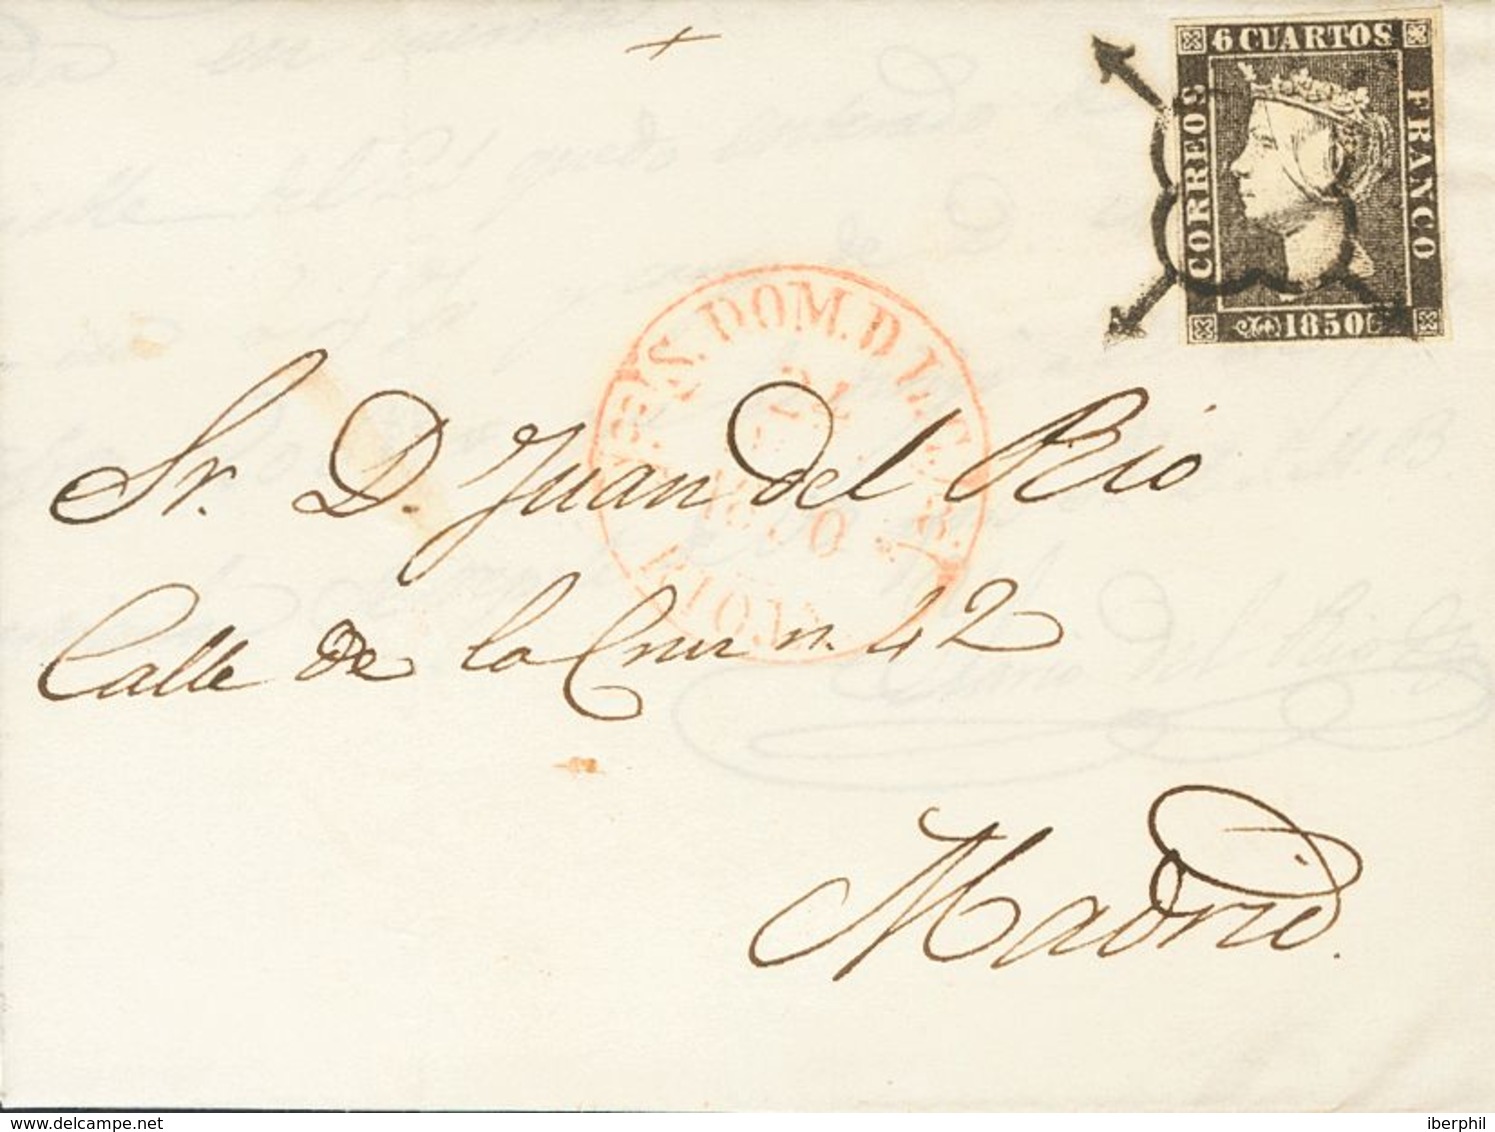 6 CUARTOS
CORREOS
FRANCO
1850
S. DOM. D L. C.
RIOJA
Sr. D. Juan del Rio
Calle de la Cruz n. 42
Madrid.
delcampe.net
iberphil